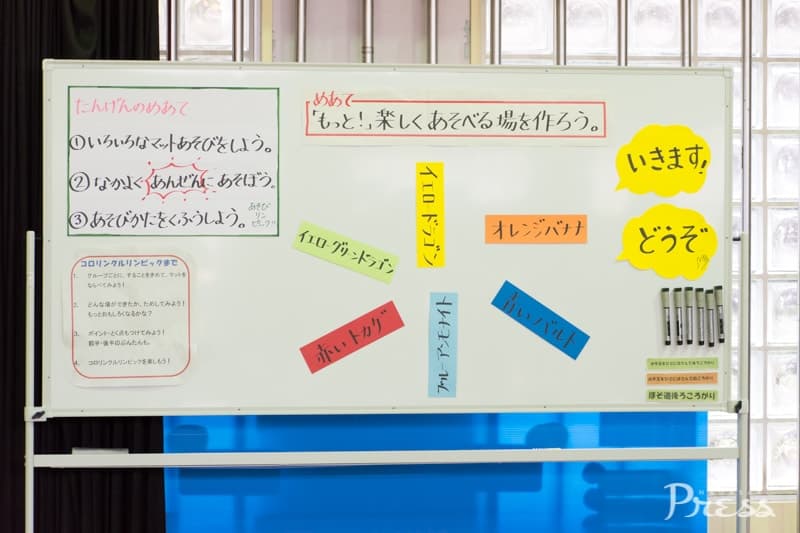 たんげんのめあて
①いろいろなマットあそびをしよう。
②なかよくあんぜんにあそぼう。
③あそびかたをくふうしよう。
めあて
「もっと!」楽しくあそべる場を作ろう。
いきます!
どうぞ
イエロードラゴン
オレンジバナナ
イエローグリーンドラゴン
赤いトカゲ
ブルーアンモナイト
青いバルト
コロリンクルリンピックまで
1. グループごとに、することをきめて、マットをならべてみよう!
2. どんな場ができたか、ためしてみよう!
もっとおもしろくなるかな?
3. ポイント・とく点もつけてみよう!
前半・後半のぶんたんも。
4. コロリンクルリンピックを楽しもう!
ほそ道後ろころがり
Press